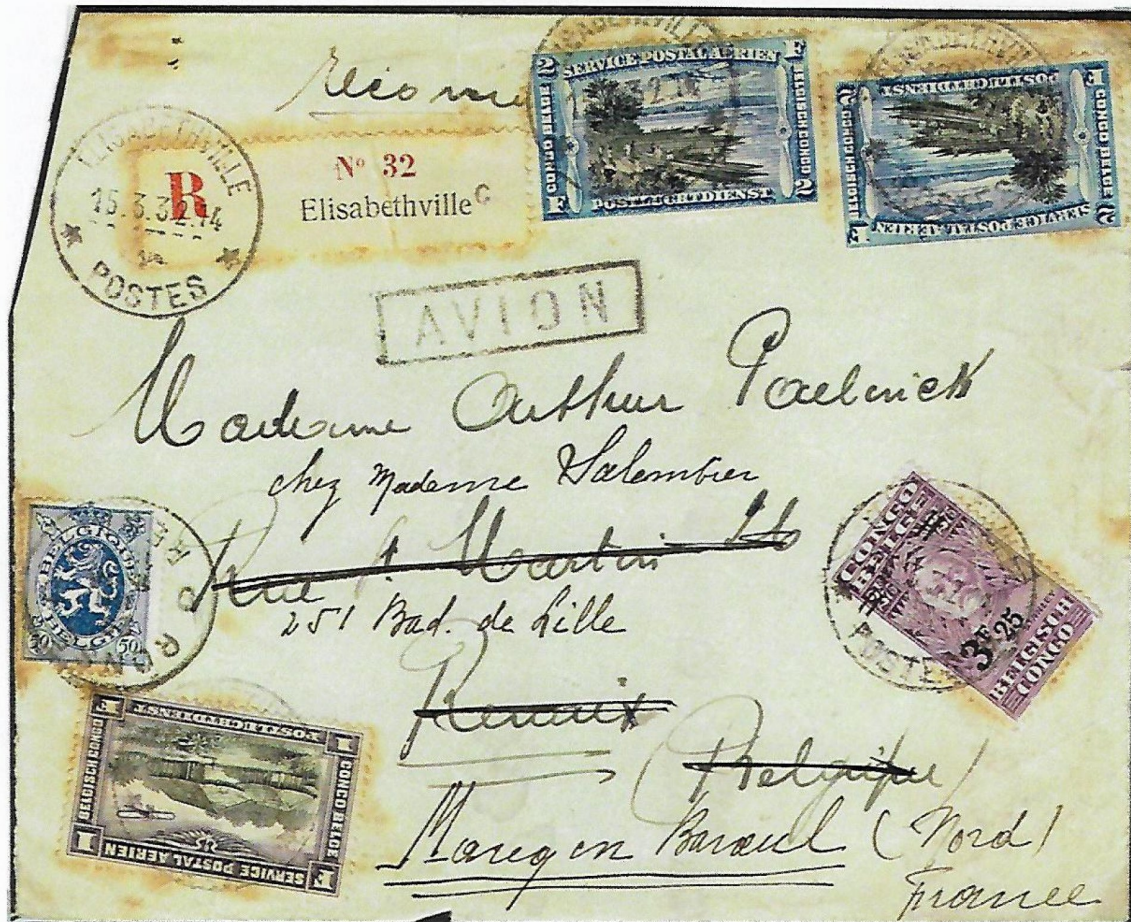 Récom
ELISABETHVILLE
15.3.32.14
POSTES
R
N° 32
Elisabethville C
2 SERVICE POSTAL AERIEN F
CONGO BELGE
BELGISCH CONGO
F POSTLUCHTDIENST 2
2 SERVICE POSTAL AERIEN F
CONGO BELGE
BELGISCH CONGO
F POSTLUCHTDIENST 2
AVION
Madame Arthur
chez Madame Salembier
Rue St Martin
251 Bad. de Lille
Renaix
Belgique
Marcq en Baroeul (Nord)
France
BELGIQUE
50 BELGIË 50
CONGO
BELGE
3F25
BELGISCH
CONGO
POSTES
1 SERVICE POSTAL AERIEN F
CONGO BELGE
BELGISCH CONGO
F POSTLUCHTDIENST 1